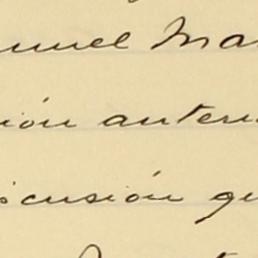 nuel Ma
ión anter
scusión qu